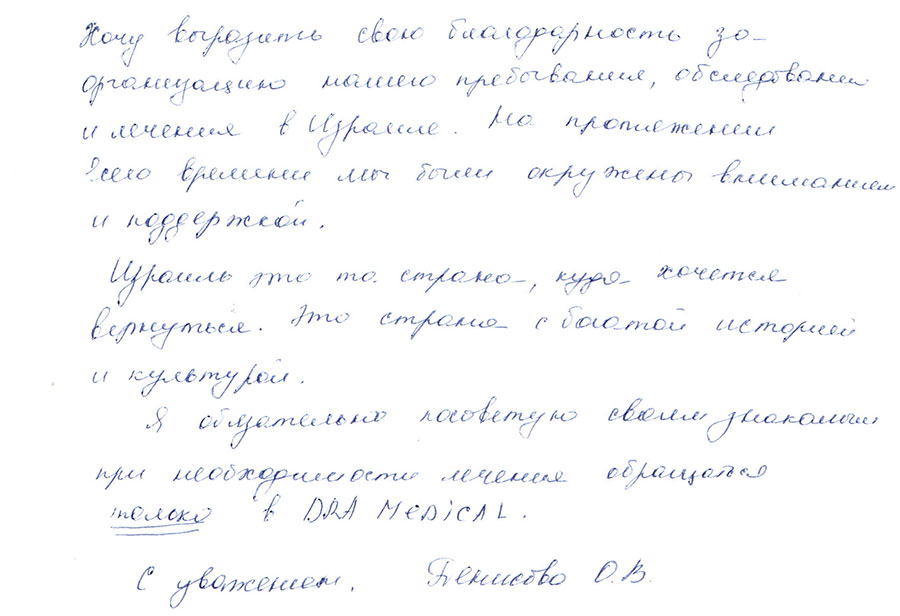 Хочу выразить свою благодарность за
организацию нашего пребывания, обследования
и лечения в Израиле. На протяжении
всего времени мы были окружены вниманием
и поддержкой.
Израиль это та страна, куда хочется
вернуться. Это страна с богатой историей
и культурой.
Я обязательно посоветую своим знакомым
при необходимости лечения обращаться
только в DRA MEDICAL.
С уважением, О.В.